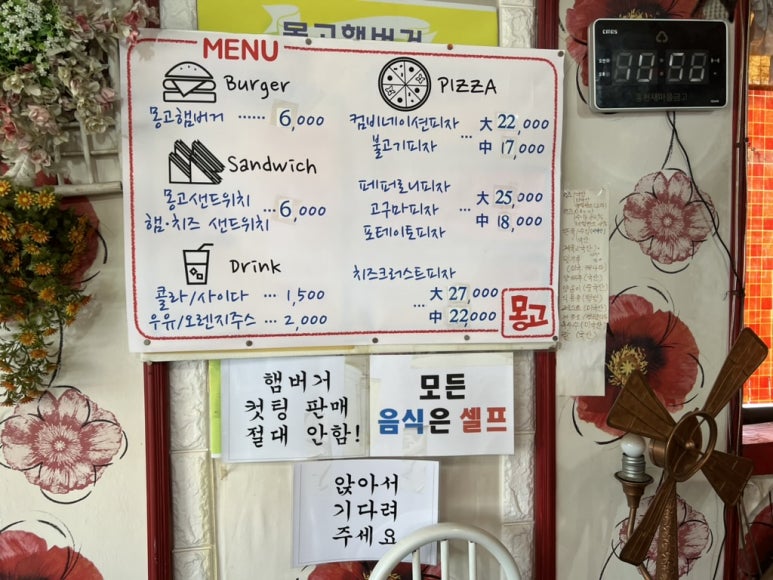 몽고햄버거
MENU
Burger
몽고햄버거 ...... 6,000
Sandwich
몽고샌드위치
햄·치즈 샌드위치 ... 6,000
Drink
콜라/사이다 ... 1,500
우유/오렌지주스 ... 2,000
PIZZA
컴비네이션피자
불고기피자
... 大 22,000
中 17,000
페퍼로니피자
고구마피자
포테이토피자
... 大 25,000
中 18,000
치즈크러스트피자
... 大 27,000
中 22,000
몽고
햄버거
컷팅 판매
절대 안함!
모든
음식은 셀프
앉아서
기다려
주세요